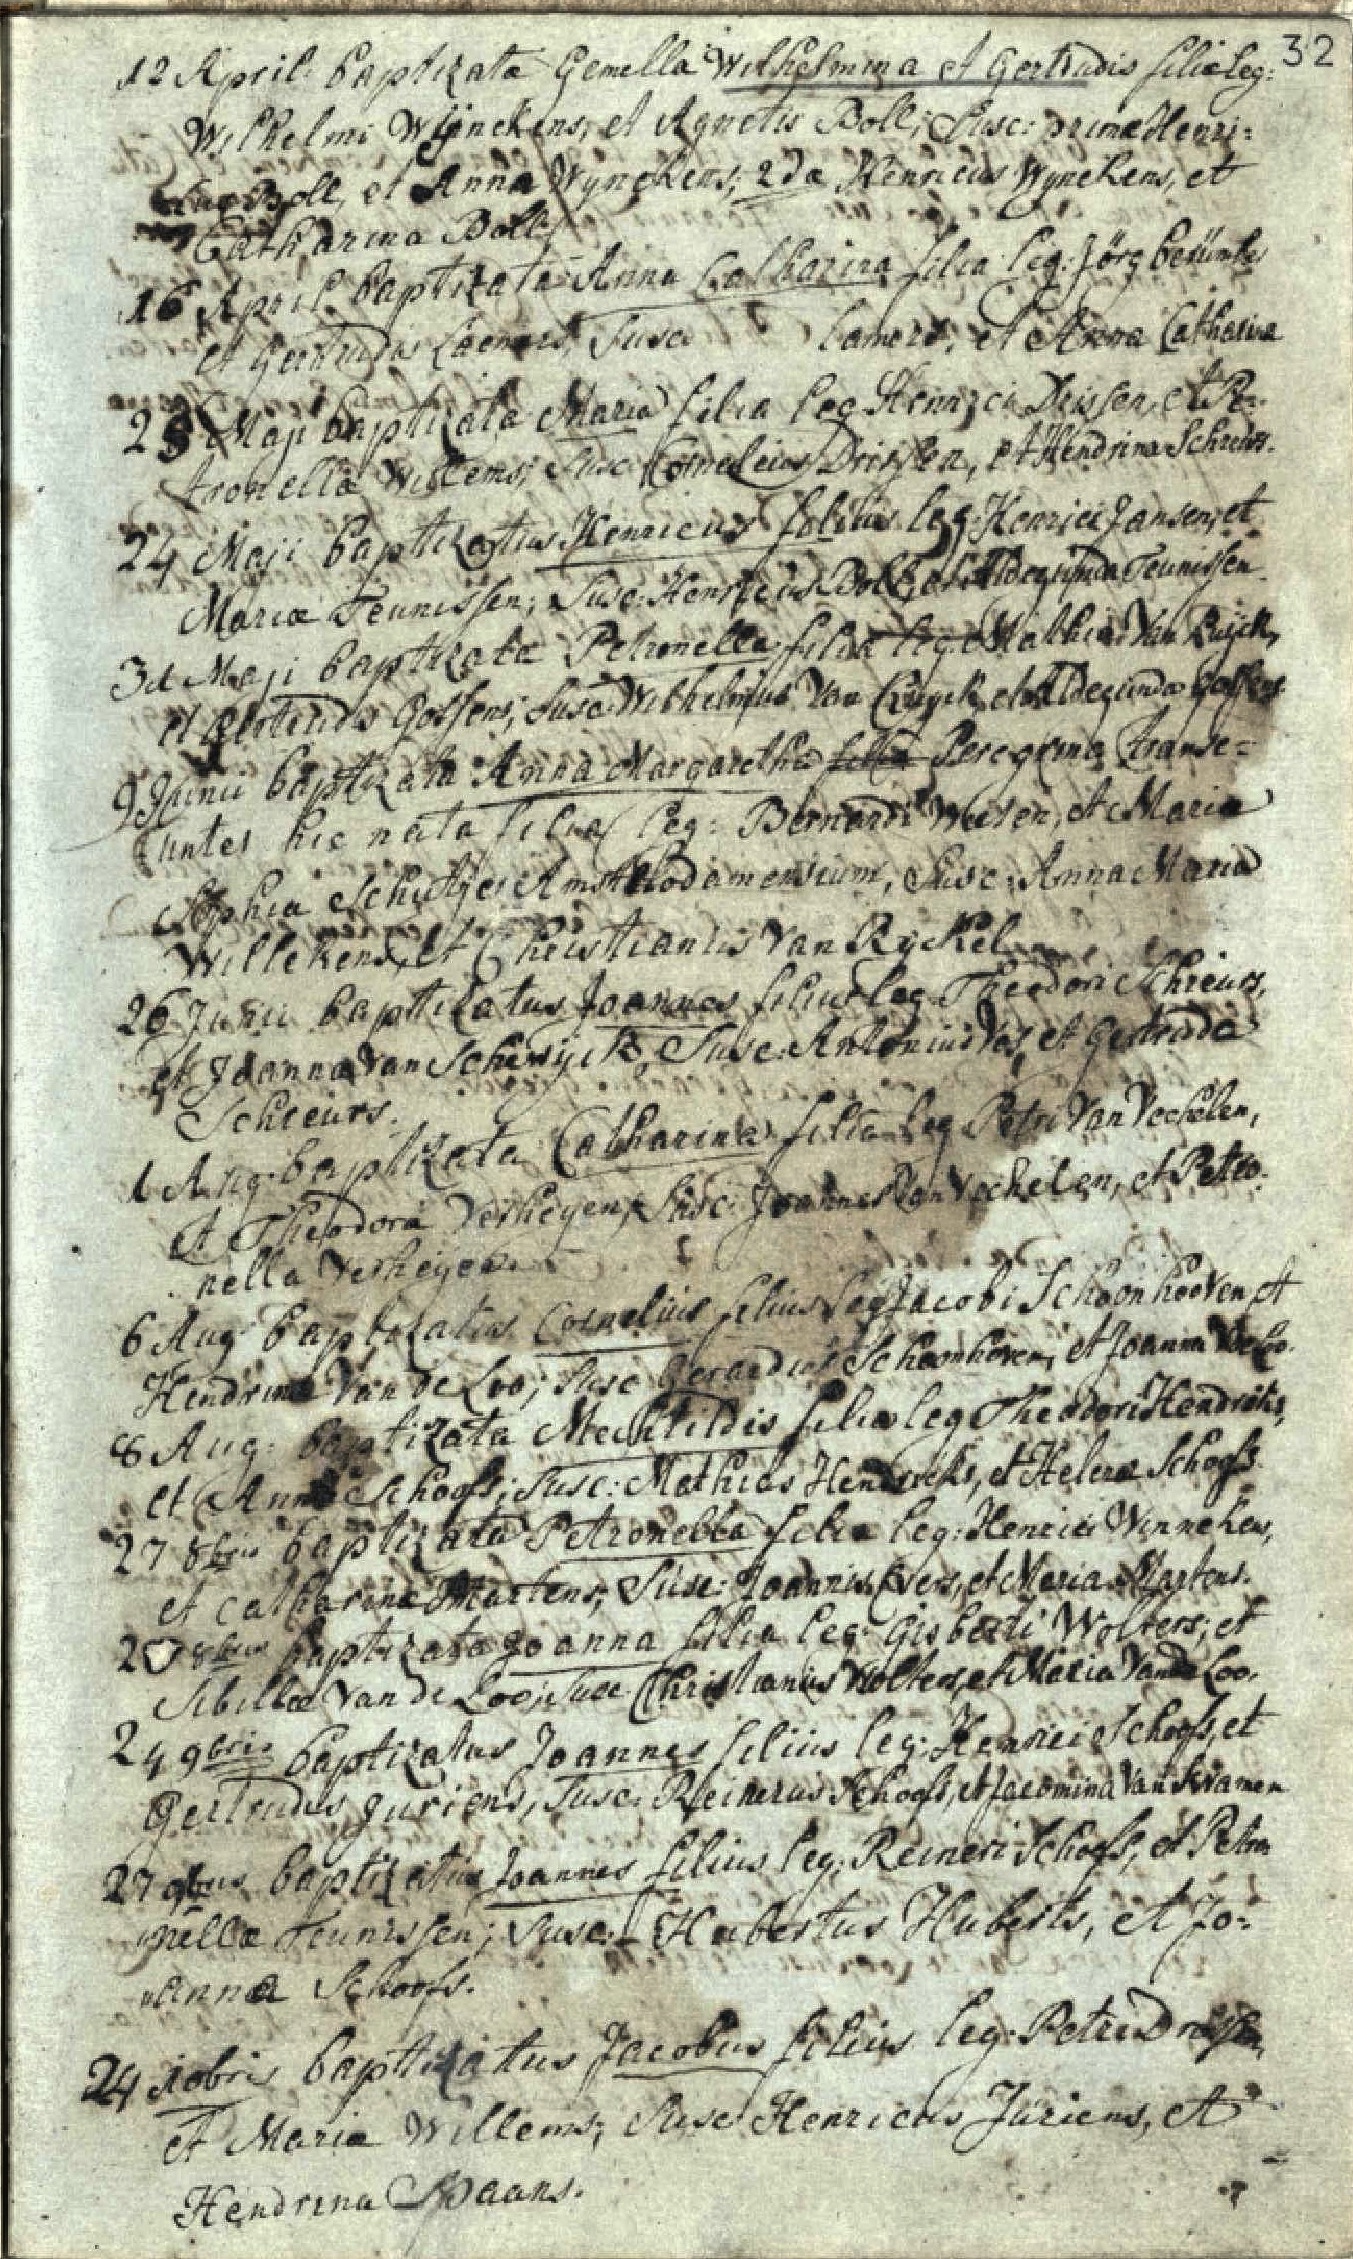 32
12 April: baptizata Gemella Wilhelmina et Gertrudis filiæ leg:
Wilhelmi Wijnekens, et Agnetis Boll; Susc: primæ Henri=
Boll, et Anna Wynekens; 2dæ Henricus Wynekens, et
Catharina Boll
16 April baptizata Anna Catharina filia leg: Jörg
et Gertrudis Lamers, Susc Lamers, et Anna Catharina
25 Maji baptizata Maria filia leg Henrici Drissen, et Pe=
tronellæ Willems; Susc Cornelius Drissen, et Hendrina Schreurs.
24 Maji baptizatus Henricus filius leg: Henrici Jansen, et
Mariæ Teunissen; Susc: Henricus Boll, et Aldegunda Teunissen
31 Maji baptizata Petronella filia leg: Mathiæ Van Cuijck,
et Gertrudis Gossens; Susc: Wilhelmus Van Cuyck, et Aldegunda Gossens
9 Junii baptizata Anna Margaretha filia Peregrina transe=
untes hic nata filia leg: Bernardi Weesen, et Maria
Sophia Schutjes Amstelodamensium, Susc: Anna Maria
Willekens, et Christianus Van Ryckel
26 Junii baptizatus Joannes filius leg Theodori Schreurs,
et Joanna Van Scherijck, Susc: Antonius Vos, et Gertruda
Schreurs.
1 Aug: baptizata Catharina filia leg Petri Van Vechelen,
et Theodora Verheyen, Susc: Joannes Van Vechelen, et Petro=
nella Verheyen.
6 Aug: baptizatus Cornelius filius leg Jacobi Schoonhooven et
Hendrina Van de Loo; Susc Gerardus Schoonhoven, et Joanna V. de Loo.
8 Aug: baptizata Mechtildis filia leg Theodori Hendriks,
et Annæ Schoofs; Susc: Mathias Hendricks, et Helena Schoofs.
27 8bris baptizata Petronella filia leg: Henrici Winnekens,
et Catharina Martens; Susc: Joannis Evers, et Maria Martens.
20 8bris baptizata Joanna filia leg: Gisberti Wolters; et
Sibillæ Van de Loo; Susc Christianus Wolters, et Maria Van de Loo.
24 9bris baptizatus Joannes filius leg: Henrici Schoofs, et
Gertrudis Juriens, Susc: Reinerus Schoofs, et Jacomina Van Kramen
27 9bris baptizatus Joannes filius leg: Reineri Schoofs, et Petro
nellæ Teunissen; Susc: Hubertus Huberts, et Jo=
anna Schoofs.
24 10bris baptizatus Jacobus filius leg: Petri Drissen,
et Mariæ Willems; Susc: Henricus Juriens, et
Hendrina Spaans.